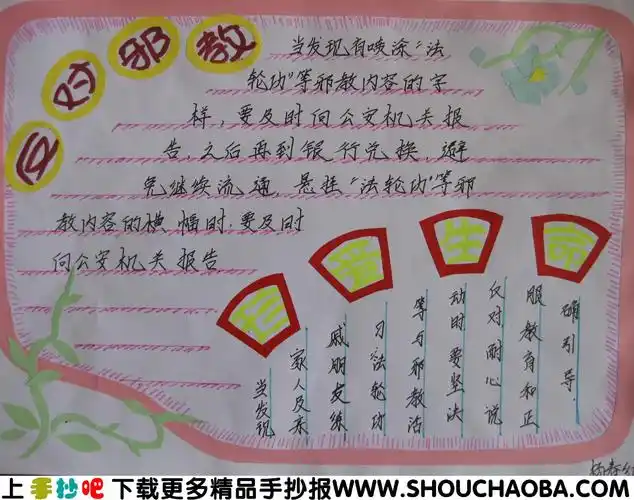 反对邪教
当发现有喷涂“法
轮功”等邪教内容的字
样，要及时向公安机关报
告，之后再到银行兑换，避
免继续流通，悬挂“法轮功”等邪
教内容的横幅时，要及时
向公安机关报告
爱生命
当发现
家人及亲
戚朋友练
习法轮功
等与邪教活
动时要坚决
反对耐心说
服教育和正
确引导.
上手抄吧 下载更多精品手抄报WWW.SHOUCHAOBA.COM